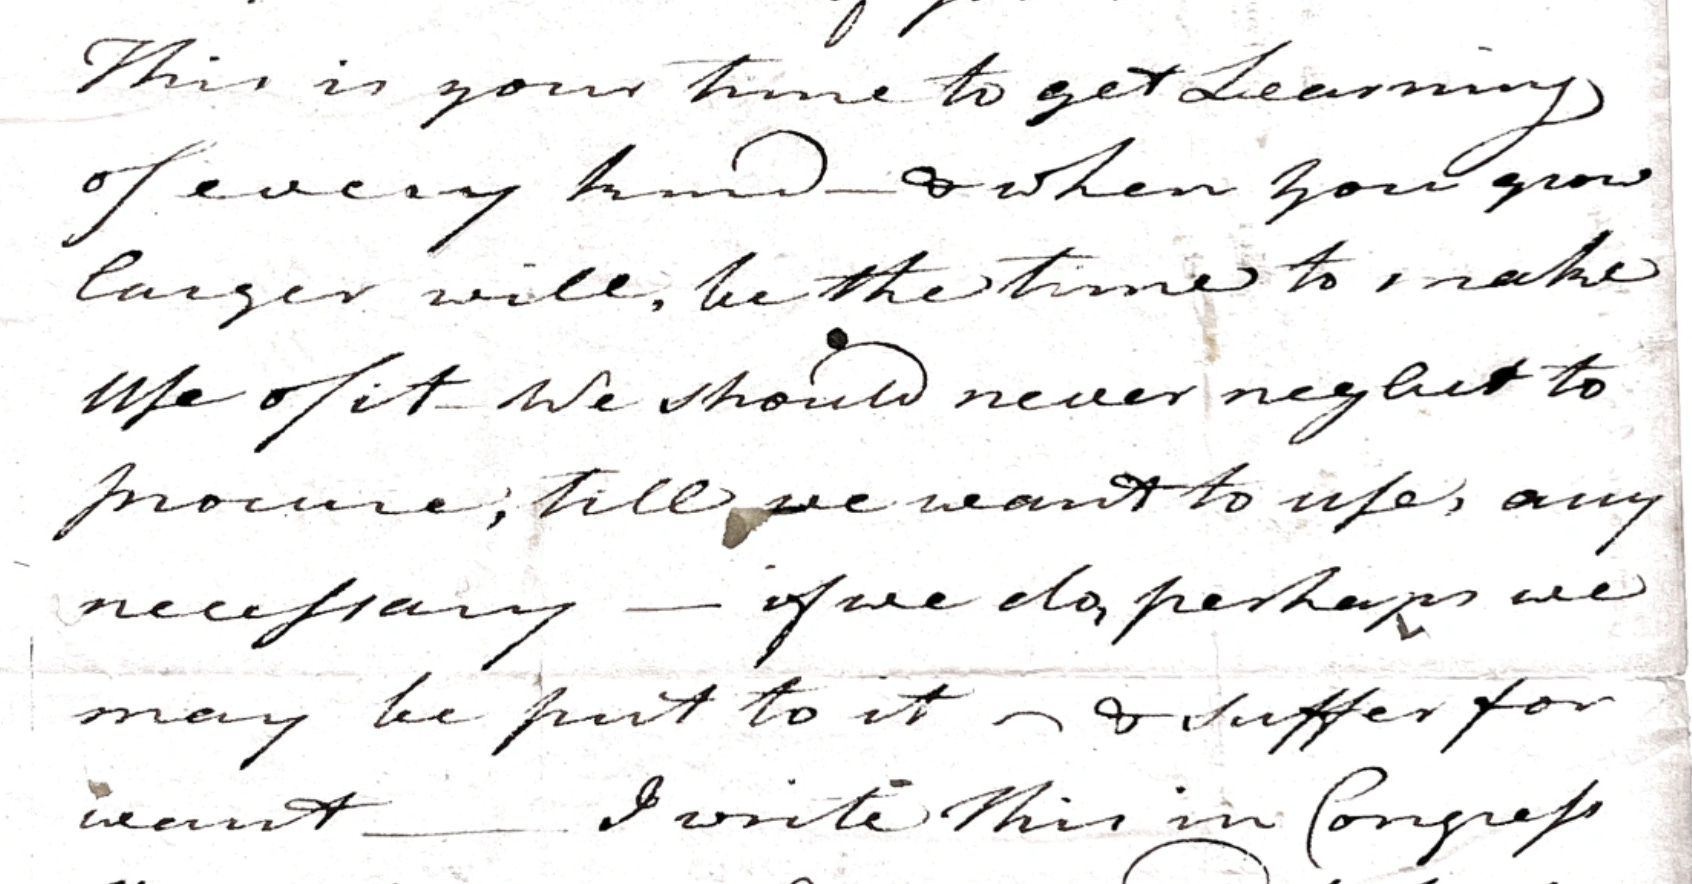 This is your time to get Learning
of every kind — & when you grow
larger will, be the time to make
Use of it – We should never neglect to
procure, till we want to use, any
necessary — if we do, perhaps we
may be put to it – & suffer for
want — I write this in Congress